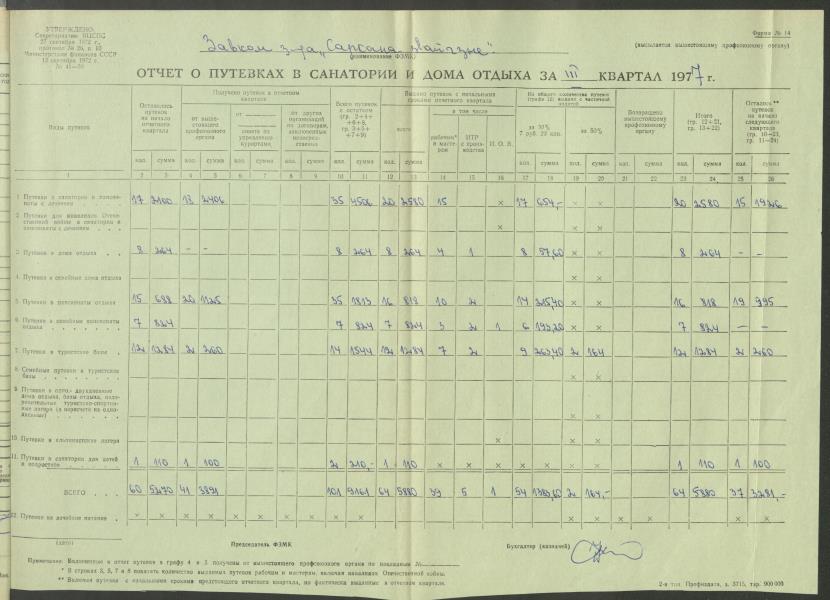 УТВЕРЖДЕНО
Секретариатом ВЦСПС
27 сентября 1972 г.,
протокол № 26, п. 10
Министерством финансов СССР
13 сентября 1972 г.
Форма № 14
(высылается вышестоящему профсоюзному органу)
Завком з-да „Саркана
(наименование ФЗМК)
ОТЧЕТ О ПУТЕВКАХ В САНАТОРИИ И ДОМА ОТДЫХА ЗА III КВАРТАЛ 1977 г.
Виды путевок
Оставалось путевок на начало отчетного квартала
Получено путевок в отчетном квартале
от вышестоящего профсоюзного органа
от
совета по управлению курортами
от других организаций по договорам, заключенным
Всего путевок с остатком (гр. 2+4+6+8, гр. 3+5+7+9)
Выдано путевок с начальными сроками отчетного квартала
всего
в том числе
рабочим и мастерам
ИТР с производства
И. О. В.
Из общего количества путевок (графа 12) выдано с частичной оплатой
за 30%
7 руб. 20 коп.
за 50%
Возвращено вышестоящему профсоюзному органу
Итого (гр. 12+21, гр. 13+22)
Осталось** путевок на начало следующего квартала (гр. 10—23, гр. 11—24)
кол. сумма кол. сумма кол. сумма кол. сумма кол. сумма кол. сумма кол. сумма кол. сумма кол. сумма кол. сумма кол. сумма
1 2 3 4 5 6 7 8 9 10 11 12 13 14 15 16 17 18 19 20 21 22 23 24 25 26
1 Путевки в санатории и пансионаты с лечением 17 2100 13 2406 35 4506 20 2580 15 × 17 654,- × × 20 2580 15 1926
2 Путевки для инвалидов Отечественной войны в санатории и пансионаты с лечением × × ×
3 Путевки в дома отдыха 8 264 - - 8 264 8 264 4 1 8 57,60 × × 8 264 - -
4 Путевки в семейные дома отдыха × ×
5 Путевки в пансионаты отдыха 15 688 20 1125 35 1813 16 818 10 2 14 215,40 × × 16 818 19 995
6 Путевки в семейные пансионаты отдыха 7 824 7 824 7 824 3 2 1 6 193,20 × × 7 824 - -
7 Путевки в туристские базы 12 1284 2 260 14 1544 12 1284 7 2 9 263,40 2 164 12 1284 2 260
8 Семейные путевки в туристские базы × ×
9 Путевки в одно- двухдневные дома отдыха, базы отдыха, оздоровительные туристско-спортивные лагеря (в пересчете на однодневные) ×
10 Путевки в альпинистские лагеря × × ×
11 Путевки в санатории для детей и подростков 1 110 1 100 2 210,- 1 110 × × × × × × × 1 110 1 100
ВСЕГО 60 5270 41 3891 101 9161 64 5880 39 5 1 54 1383,60 2 164,- 64 5880 37 3281,-
12 Путевки на лечебное питание × × × × × × × × × × × × × ×
(дата)
Председатель ФЗМК
Бухгалтер (казначей)
Примечание: Включенные в отчет путевки в графе 4 и 5 получены от вышестоящего профсоюзного органа по накладным №
* В строках 3, 5, 7 и 8 показать количество выданных путевок рабочим и мастерам, включая инвалидов Отечественной войны.
** Включая путевки с начальными сроками предстоящего отчетного квартала, но фактически выданные в отчетном квартале.
2-я тип. Профиздата, з. 3715, тир. 900 000